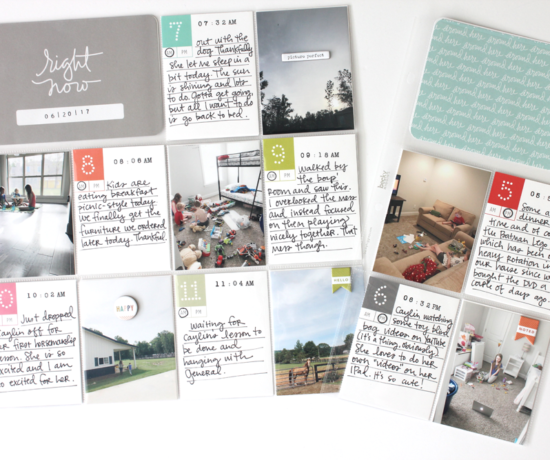 right
now
06|20|17
7
07:32 AM
AM PM
out with the
dog. Thankfully
she let me sleep in a
bit today. The sun
is shining and lots
to do. Gotta get going,
but all I want to do
is go back to bed.
around here. around here. around here.
8
08:06 AM
AM PM
Kids are
eating breakfast
picnic-style today.
We finally get the
furniture we ordered
later today. Thankful.
9
09:18 AM
AM PM
walked by
the boys'
room and saw this.
I overlooked the mess
and instead focused
on them playing
nicely together. That
mess though.
0
10:02 AM
PM
Just dropped
Caylin off for
her first horsemanship
lesson. She is so
excited and I am
so excited for her.
HAPPY
11
11:04 AM
AM PM
waiting for
Caylin's lesson to
be done and
hanging with
General.
HELLO
5
Some a
dinner
the Batman Lego
which has been o
heavy rotation i
our house since w
bought the DVD a
couple of days ago
6
08:32 PM
AM PM
Caylin watching
some toy blind
bag videos on YouTube
(it's a thing, obviously)
She loves to do her
own "videos" on her
iPad. It's so cute!
NOTED